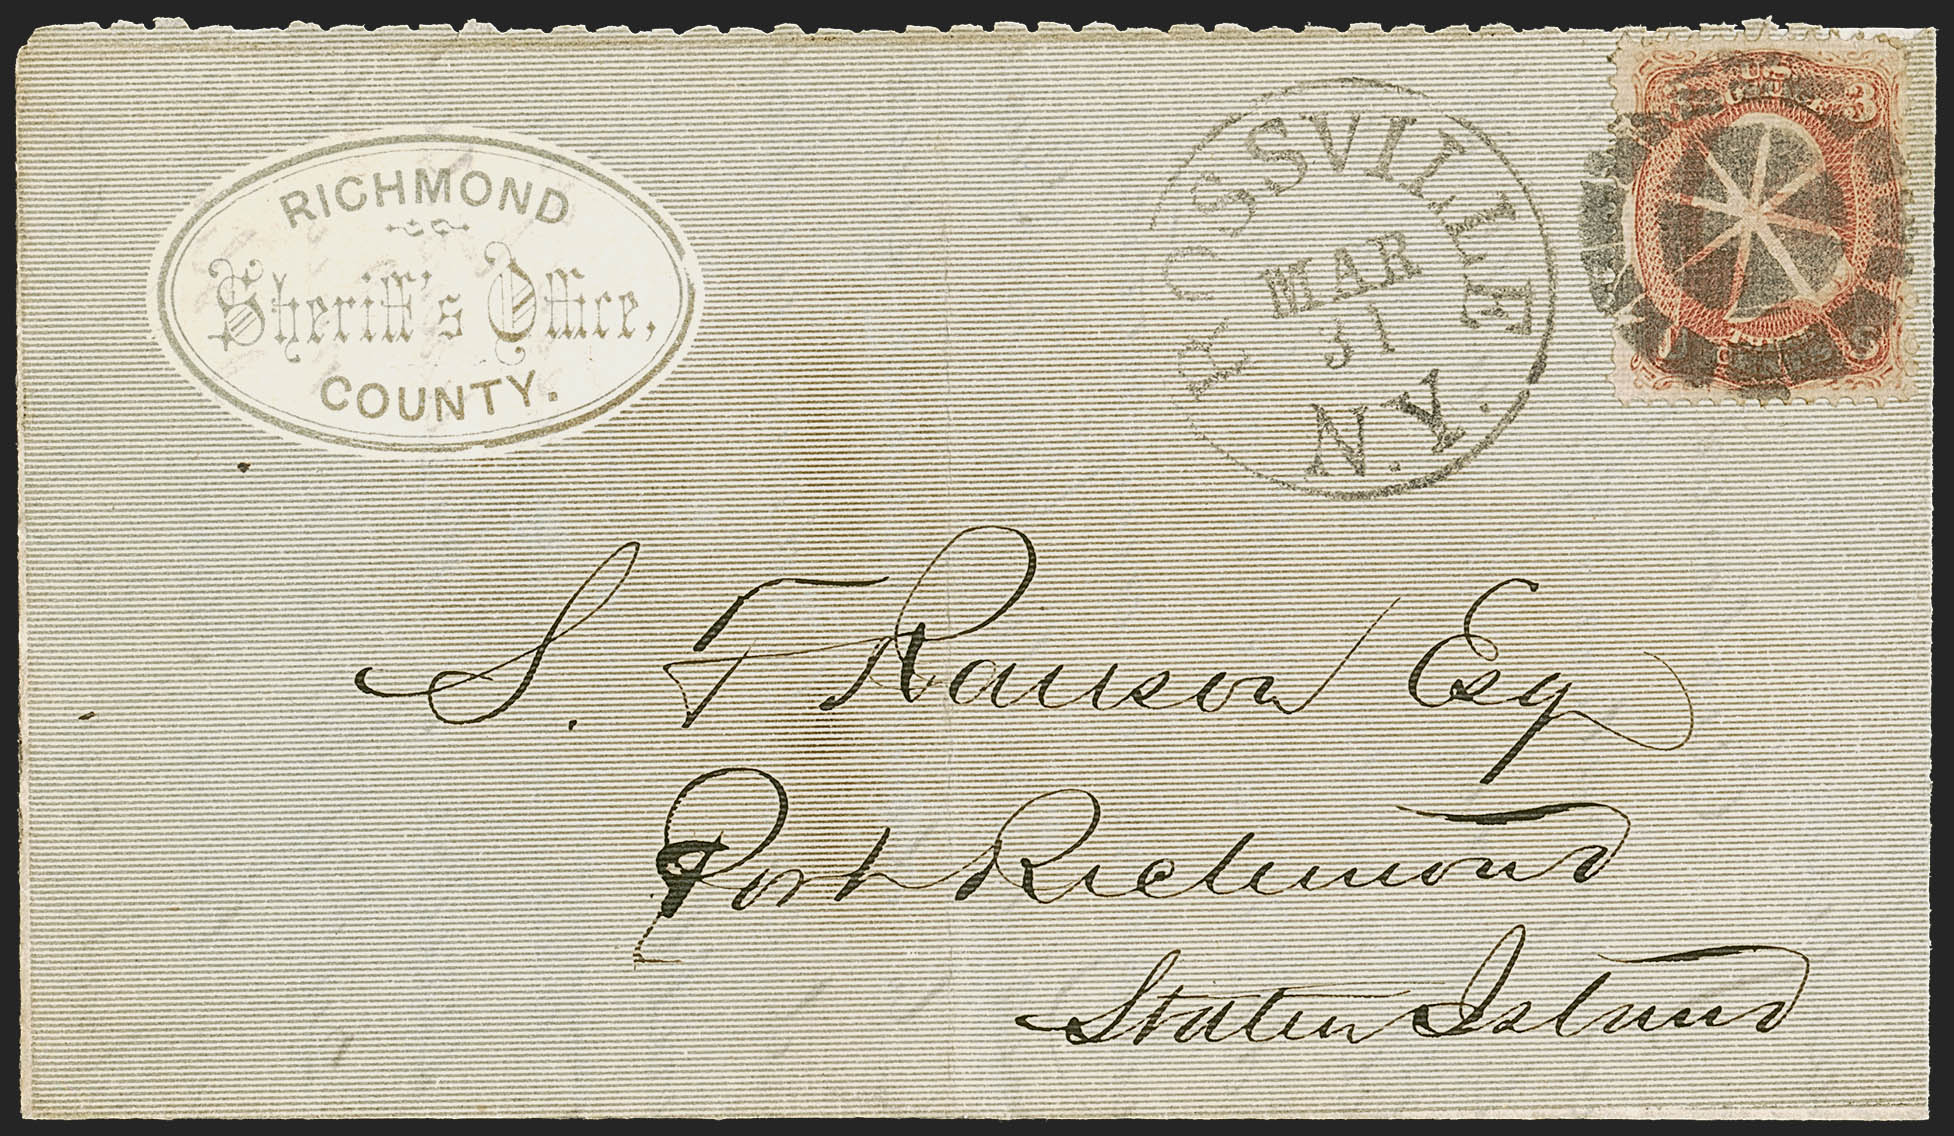 RICHMOND
Sheriff's Office,
COUNTY.
ROSSVILLE
MAR
31
N.Y.
U.S.
3
S. T Ranson Esq
Port Richmond
Staten Island